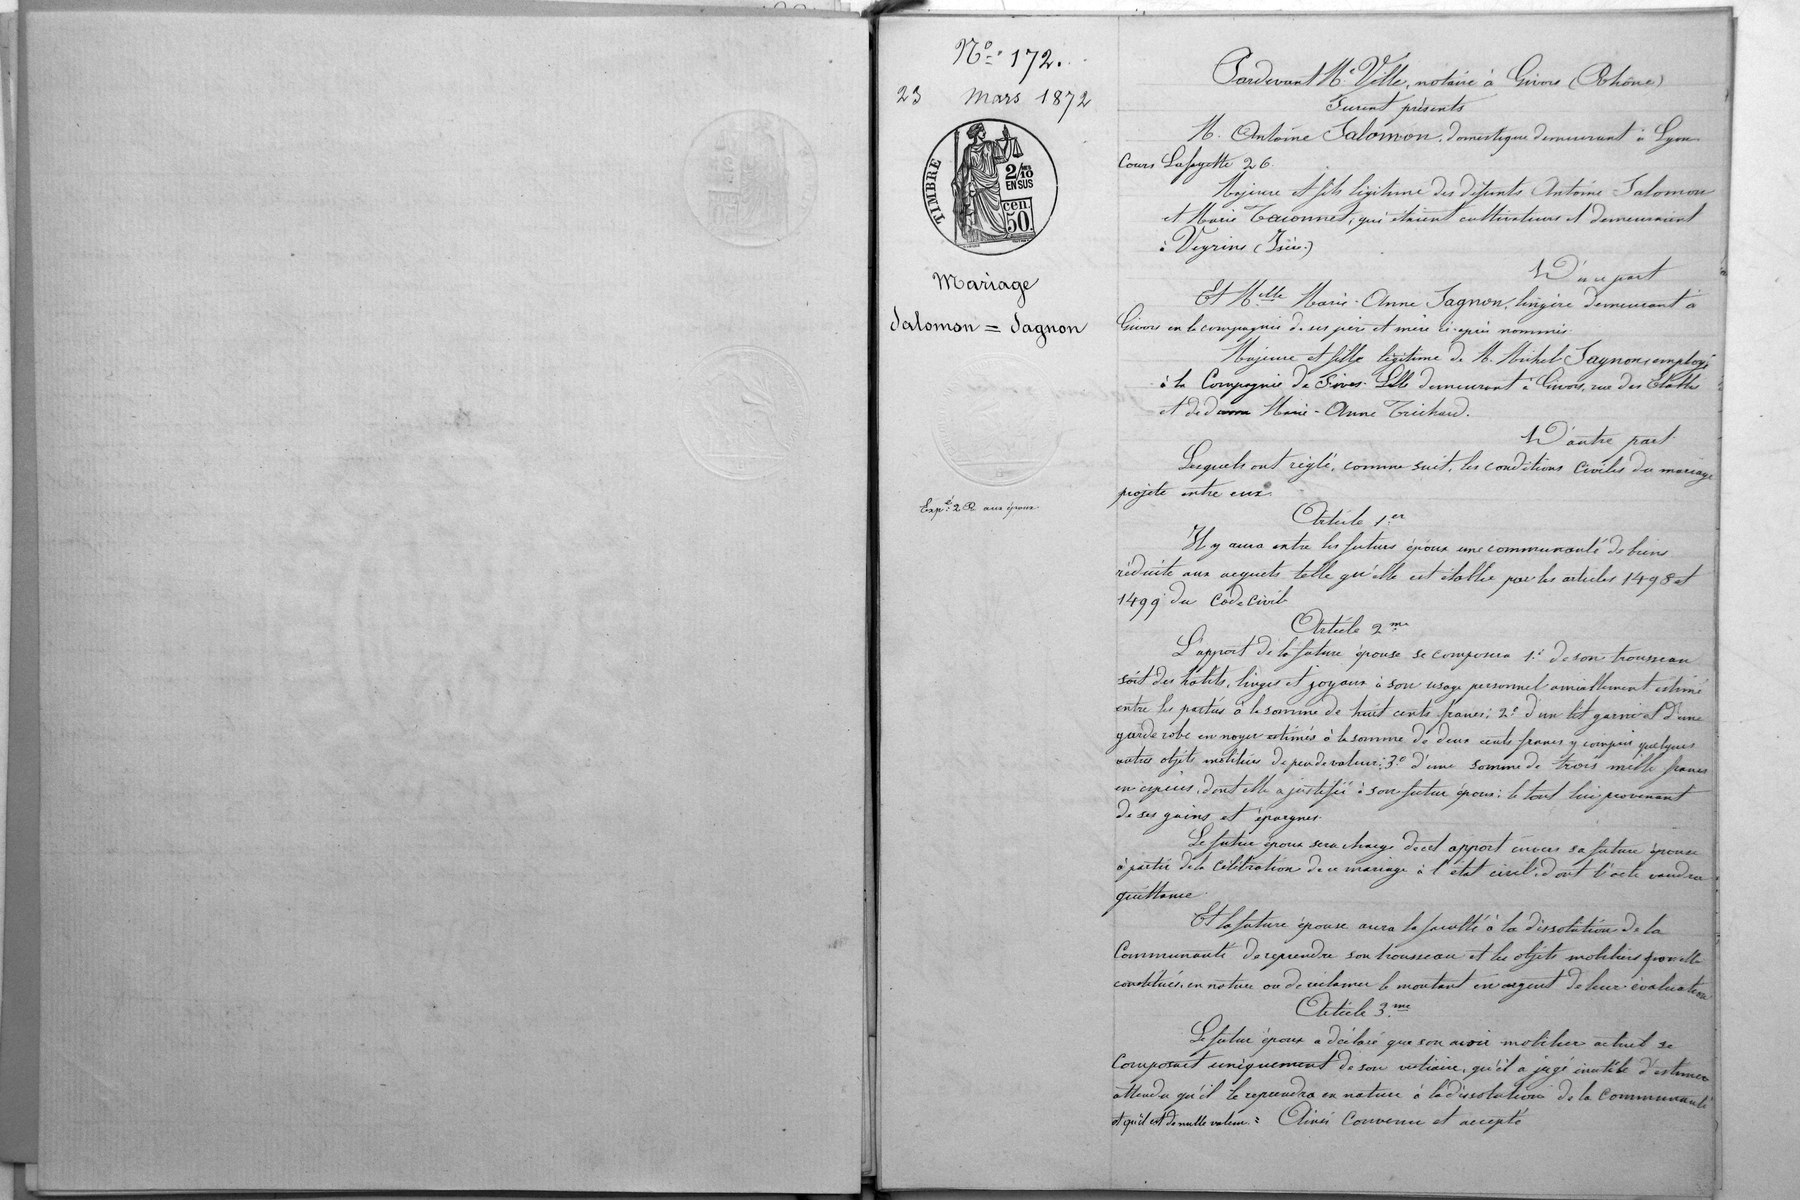 No. 172.
23 Mars 1872
TIMBRE
2/10
EN SUS
cen.
50.
Mariage
Salomon = Sagnon
Expé. 2 R aux époux
Pardevant Me Ville, notaire à Givors (Rhône)
Furent présents
M. Antoine Salomon, domestique demeurant à Lyon
Cours Lafayette 26.
Majeur et fils légitime des défunts Antoine Salomon
et Marie, qui étaient cultivateurs et demeuraient
à Veyrins (Isère.)
D'une part
Et Melle Marie-Anne Sagnon, lingère demeurant à
Givors en la compagnie de ses père et mère ci-après nommés.
Majeure et fille légitime de M. Michel Sagnon, employé
à la Compagnie de Fives-Lille demeurant à Givors, rue des
et de dame Marie-Anne Trichard.
D'autre part.
Lesquels ont réglé, comme suit, les conditions civiles du mariage
projeté entre eux.
Article 1.er
Il y aura entre les futurs époux une communauté de biens
réduite aux acquets telle qu'elle est établie par les articles 1498 et
1499 du Code Civil
Article 2.me
L'apport de la future épouse se composera 1.º de son trousseau
soit des habits, linges et joyaux à son usage personnel amiablement estimé
entre les parties à la somme de huit cents francs; 2.º d'un lit garni et d'une
garde robe en noyer estimés à la somme de deux cents francs y compris quelques
autres objets mobiliers de peu de valeur; 3.º d'une somme de trois mille francs
en espèces, dont elle a justifié à son futur époux; le tout lui provenant
de ses gains et épargnes.
Le futur époux sera chargé de cet apport envers sa future épouse
à partir de la célébration de ce mariage à l'état civil dont l'acte vaudra
quittance.
Et la future épouse aura la faculté à la dissolution de la
Communauté de reprendre son trousseau et les objets mobiliers par elle
constitués, en nature ou de réclamer le montant en argent de leur évaluation
Article 3.me
Le futur époux a déclaré que son avoir mobilier actuel se
composait uniquement de son vestiaire, qu'il a jugé inutile d'estimer
attendu qu'il le reprendra en nature à la dissolution de la Communauté
et qu'il est de nulle valeur. = Ainsi convenu et accepté